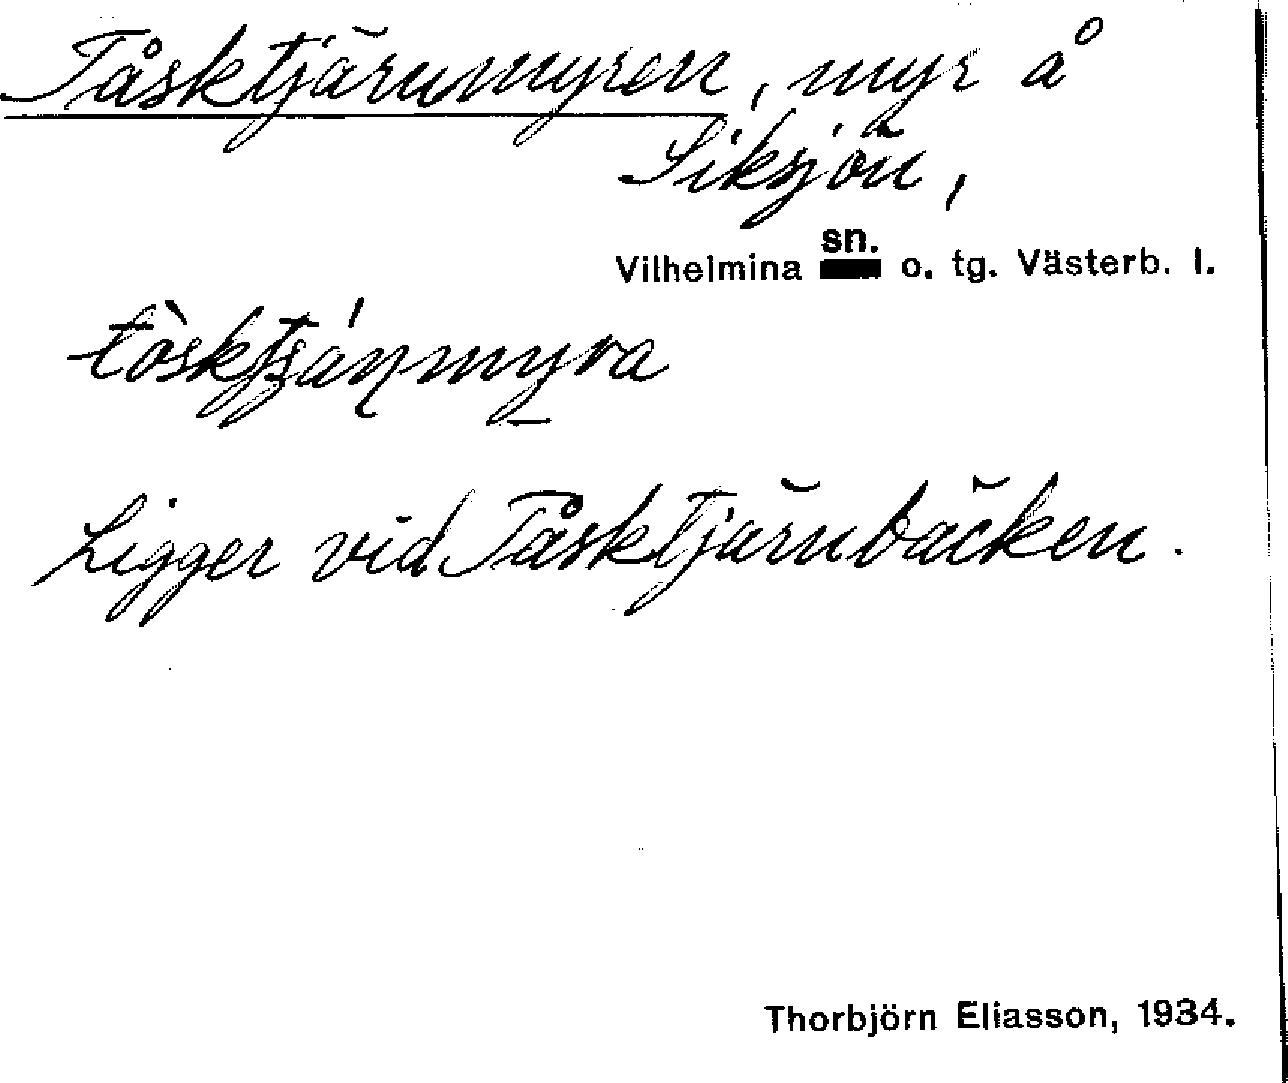 Tåsktjärnmyren, myr å
Siksjön,
Vilhelmina sn. o. tg. Västerb. l.
tòsktjánmyra
Ligger vid Tåsktjärnbäcken.
Thorbjörn Eliasson, 1934.